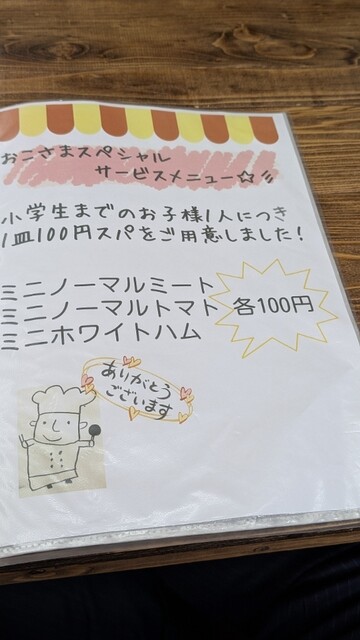 おこさまスペシャル
サービスメニュー☆彡
小学生までのお子様1人につき
1皿100円スパをご用意しました!
ミニノーマルミート
ミニノーマルトマト
ミニホワイトハム
各100円
ありがとう
ございます